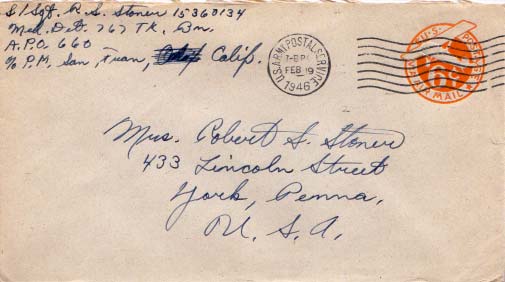 S/Sgt. R. S. Stoner 15360134
Med. Det. 767 Tk. Bn.
A.P.O. 660
c/o P.M. San Fran, Calif.
U.S. ARMY POSTAL SERVICE
7-8 PM
FEB 19
1946
U.S. POSTAGE
6¢
VIA AIR MAIL
Mrs. Robert S. Stoner
433 Lincoln Street
York, Penna.
U. S. A.